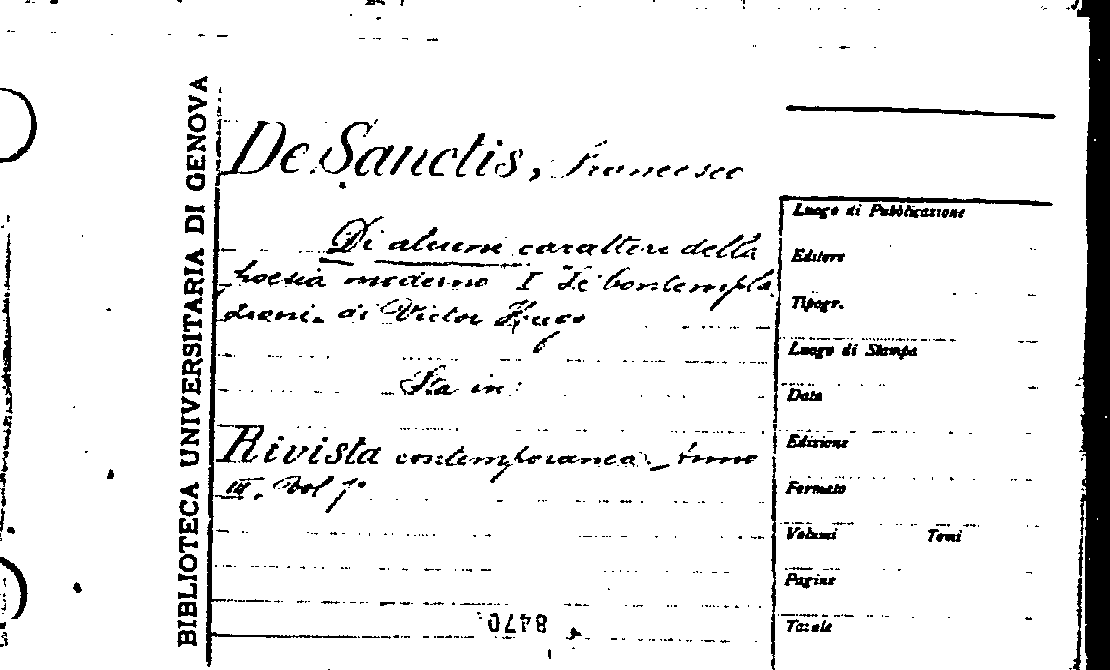 BIBLIOTECA UNIVERSITARIA DI GENOVA
De Sanctis, Francesco
Di alcuni caratteri della
poesia moderna I "Le Contempla
zioni" di Victor Hugo
Sta in:
Rivista contemporanea _ tomo
III. Vol 1°
8470
Luogo di Pubblicazione
Editore
Tipogr.
Luogo di Stampa
Data
Edizione
Formato
Volumi Tomi
Pagine
Tavole